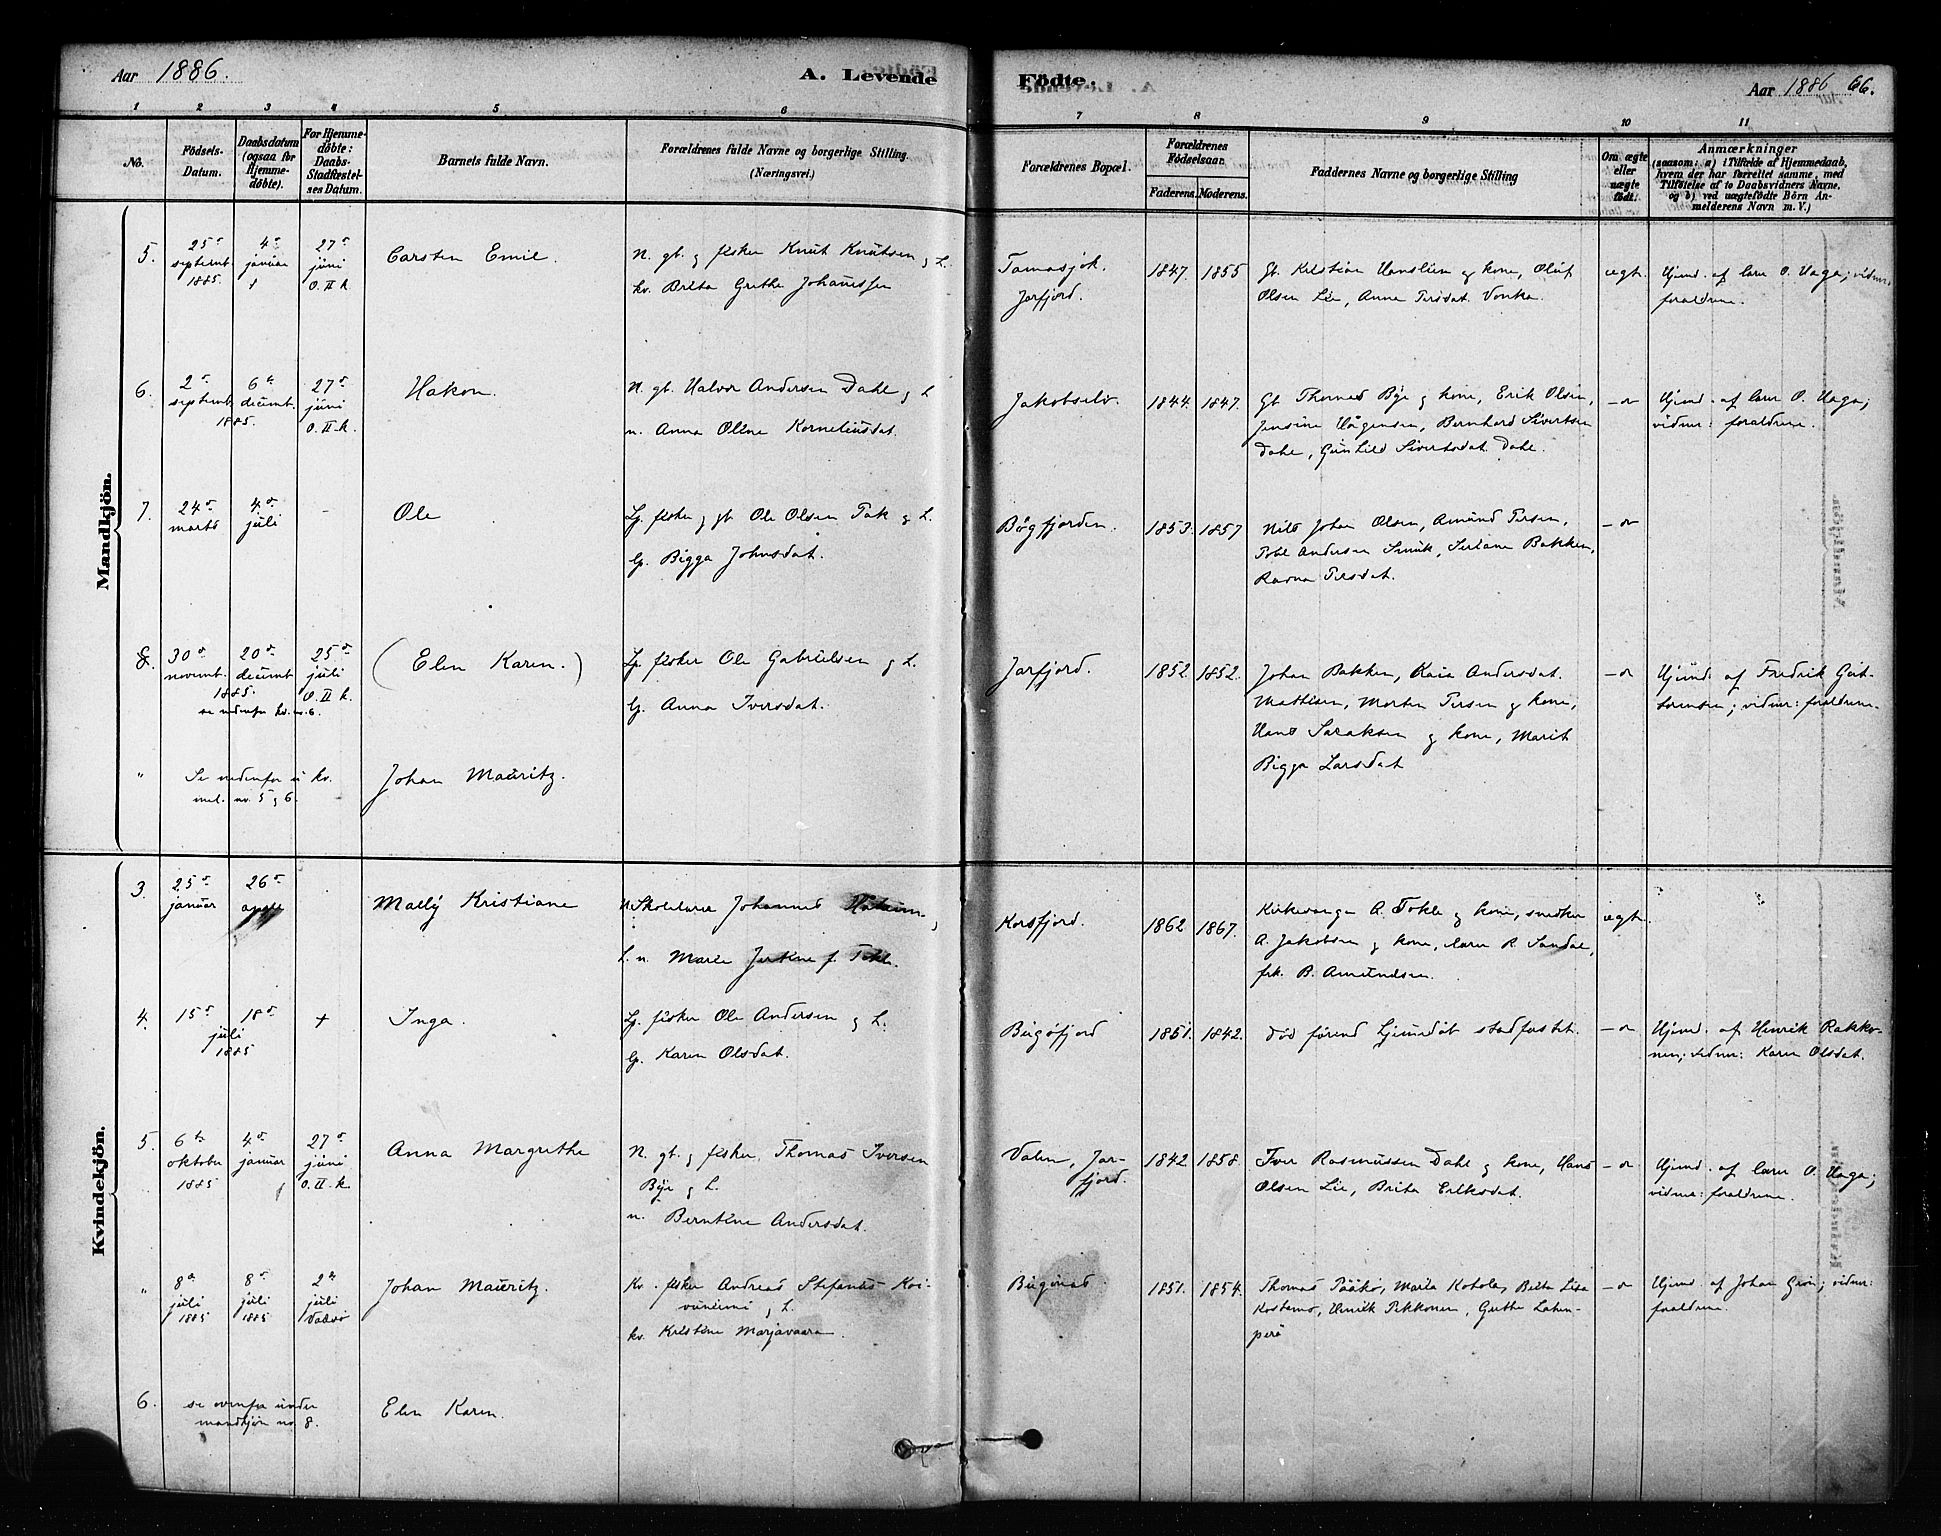 Aar 1886.
A. Levende
Födte.
Aar 1886 66.
1 2 3 4 5 6 7 8 9 10 11
No.
Födsels-Datum.
Daabsdatum (ogsaa for Hjemme-döbte).
For Hjemme-döbte: Daabs-Stadfæstel-ses Datum.
Barnets fulde Navn.
Forældrenes fulde Navne og borgerlige Stilling.
(Næringsvei.)
Forældrenes Bopæl.
Forældrenes Födselsaar.
Faderens. Moderens.
Faddernes Navne og borgerlige Stilling
Om ægte eller uægte födt.
Anmærkninger
(saasom: a) i Tilfælde af Hjemmedaab,
hvem der har forrettet samme, med
Tilföielse af to Daabsvidners Navne,
og b) ved uægtefödte Börn An-
melderens Navn m. V.)
Mandkjön.
5. 25de septembr. 1885 4de januar 27de juni O. II k. Carsten Emil.
N. gb. og fisker Knut Knutsen og h.
kv. Brita Grethe Johannesen
Jarfjord. 1847. 1855
Gb. Kristian Hanslien og kone, Oluf
Olsen Lie, Anne Persdat. Vonka.
ægt. Hjemd. af lærer O. Haga; vidner:
forældrene.
6. 2de septembr. 6te decembr. 1885. 27de juni O. II. k. Hakon.
N. gb. Halvor Andersen Dahl og h.
n. Anna Oline Korneliusdat.
Jakobselv. 1844. 1847.
Gb. Thomas Bye og kone, Erik Olsen,
Jensine Hågensen, Bernhard Sivertsen
Dahl, Gunhild Sivertsdat. Dahl.
Hjemd. af lærer O. Haga;
vidner: forældrene.
7. 24de marts 4de juli - Ole
Lp. fisker og gb. Ole Olsen Tak og h.
lp. Bigga Johnsdat.
Bøgfjorden. 1853. 1857
Nils Johan Olsen, Amund Persen,
Andersen Smuk, Bakken,
Ravna Persdat.
8. 30de novembr. 20de decembr. 1885. 25de juli O. II k. (Elen Karen.)
se nedenfor kv. no. 6.
Lp. fisker Ole Gabrielsen og h.
lp. Anna Iversdat.
Jarfjord. 1852. 1852.
Johan Bakken, Kaia Andersdat.
Mathisen, Morten Persen og kone,
Hans Saraksen og kone, Marit
Bigga Larsdat
Hjemd. af Fredrik Gut-
tormsen; vidner: forældrene.
" Se nedenfor u. kv.
mel. no. 5 og 6. Johan Mauritz.
Kvindekjön.
3. 25de januar 26de april Mally Kristiane
N. Skolelærer Johannes
h. n. Marie f. Tokle.
Korsfjord. 1862. 1867.
Kirkesanger A. Tokle og kone, snedker
A. Jakobsen og kone, lærer R. Sandal,
frk. B. Amundsen.
ægt.
4. 15de 18de juli 1885 + Inga.
Lp. fisker Ole Andersen og h.
lp. Karen Olsdat.
Bugøfjord 1851. 1842.
Død førend hjemdåb stadfæstet.
Hjemd. af Henrik Rakko-
nen; vidner: Karen Olsdat.
5 6te oktober 1885 4de januar 27de juni O. II. k. Anna Margrethe
N. gb. og fisker Thomas Iversen
Bye og h.
n. Berntine Andersdat.
Valen, Jar-
fjord. 1842 1858
Iver Rasmussen Dahl og kone, Hans
Olsen Lie, Brita Eriksdat.
Hjemd. af lærer O. Haga;
vidner: forældrene.
" 8de juli 1885 8de juli 1885 2den juli Vadsø Johan Mauritz.
Kv. fisker Andreas Stefanus Koi-
vuniemi og h.
kv. Kristine Marjavaara.
Bugønes. 1851. 1854.
Thomas Pääkö, Maria Kotola, Brita Lisa
Kostamo, Henrik Pekkonen, Grethe Laten-
perä
Hjemd. af Johan Grøn; vidner:
forældrene.
6. se ovenfor under
mandkjøn no. 8. Elen Karen.